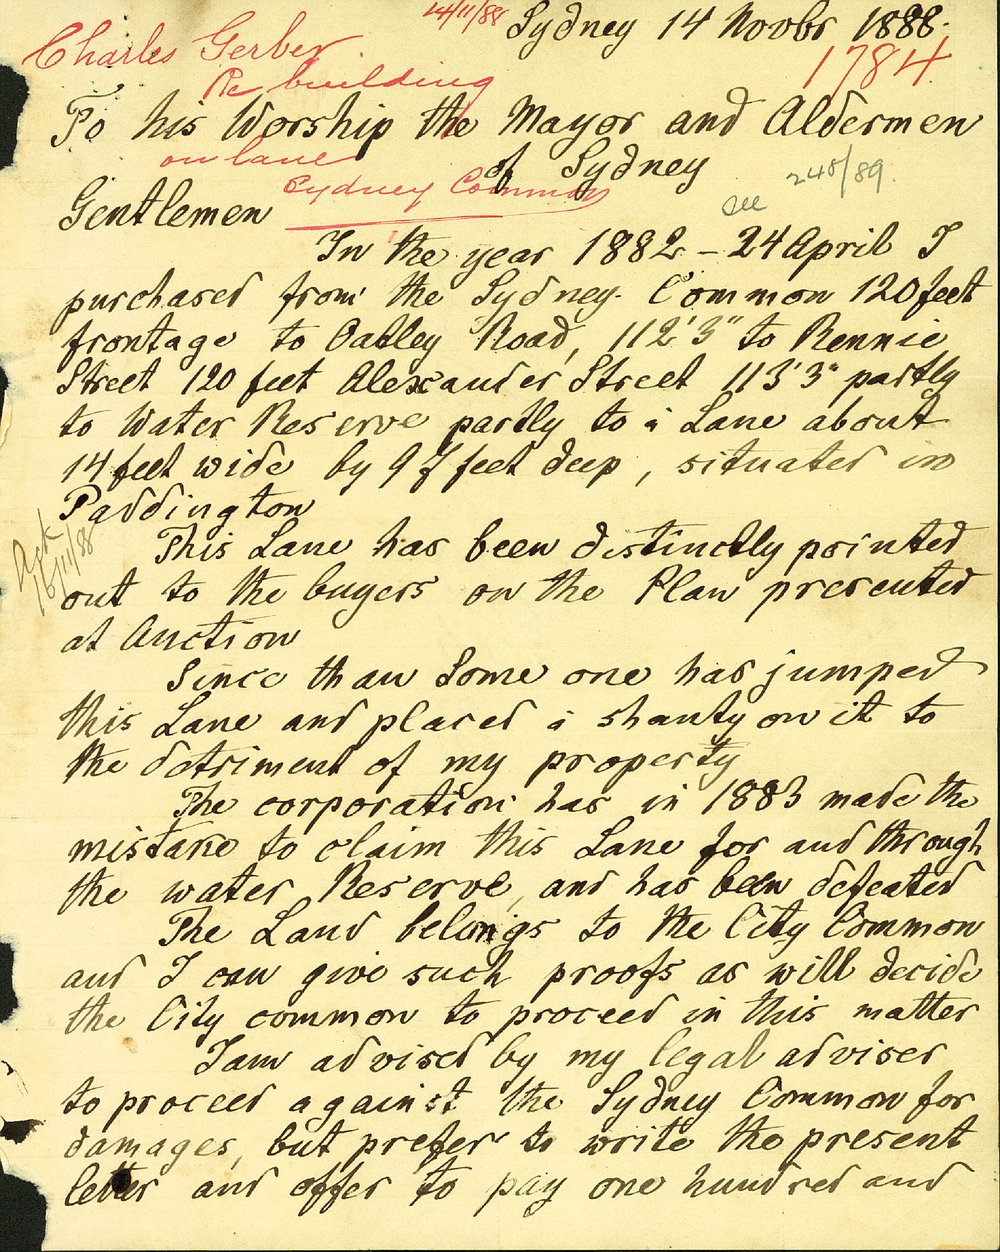 14/11/88
Sydney 14 Novbr 1888.
Charles Gerber.
1784
Re building
To his Worship the Mayor and Aldermen
on lane
of Sydney
Sydney Common
see 248/89.
Gentlemen
In the year 1882 – 24 April I
purchased from the Sydney Common 120 feet
frontage to Oatley Road, 112'3" to Rennie
Street 120 feet Alexander Street 113'3" partly
to Water Reserve partly to a Lane about
14 feet wide by 97 feet deep, situated in
Paddington
Ack 16/11/88
This Lane has been distinctly pointed
out to the buyers on the Plan presented
at Auction
Since than some one has jumped
this Lane and placed a shanty on it to
the detriment of my property
The corporation has in 1883 made the
mistake to claim this Lane for and through
the water Reserve, and has been defeated
The Land belongs to the City Common
and I can give such proofs as will decide
the City common to proceed in this matter
I am advised by my legal adviser
to proceed against the Sydney Common for
damages, but prefer to write the present
letter and offer to pay one hundred and